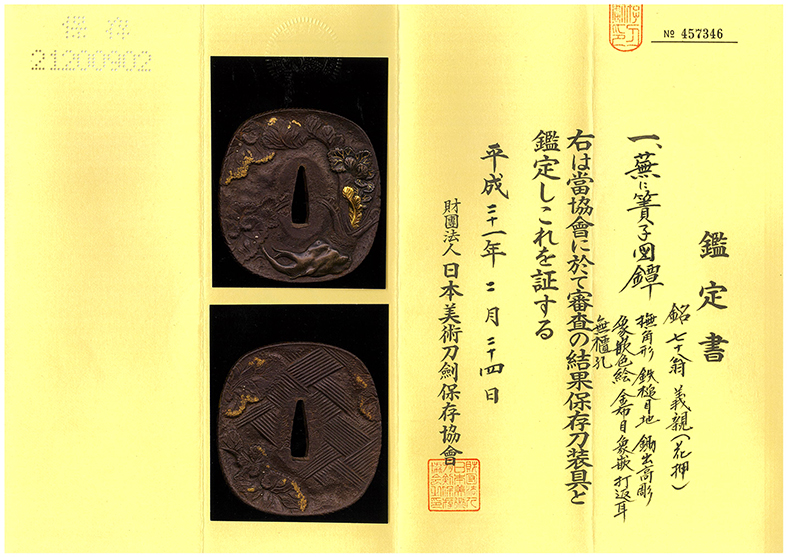 保存
21200902
№ 457346
鑑定書
一、蕪に簀子図鐔
銘 七十翁 義親(花押)
撫角形 鉄槌目地 鋤出高彫
象嵌色絵 金布目象嵌 打返耳
無櫃孔
右は當協會に於て審査の結果保存刀装具と
鑑定しこれを証する
平成二十一年二月二十四日
財團法人日本美術刀劍保存協會